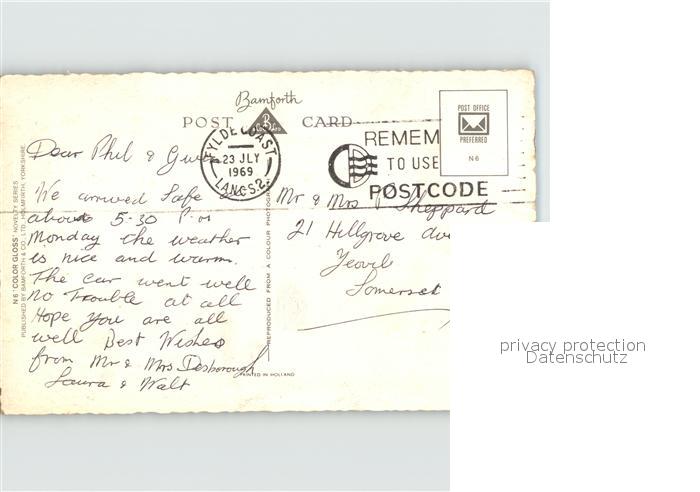 Bamforth
POST CARD
POST OFFICE
PREFERRED
N6
FYLDE COAST
23 JLY
1969
LANCS. 2
REMEM
TO USE
POSTCODE
Dear Phil &
We arrived Safe
about 5-30 P.m
Monday the weather
is nice and warm.
The car went well
No Trouble at all
Hope You are all
well Best Wishes
from Mr & Mrs Desborough
Laura & Walt
Mr & Mrs Sheppard
21 Hillgrove ave
Yeovil
Somerset
N6 'COLOR GLOSS' NOVELTY SERIES
PUBLISHED BY BAMFORTH & CO. LTD., HOLMFIRTH, YORKSHIRE
REPRODUCED FROM A COLOUR PHOTOGRA
PRINTED IN HOLLAND
privacy protection
Datenschutz